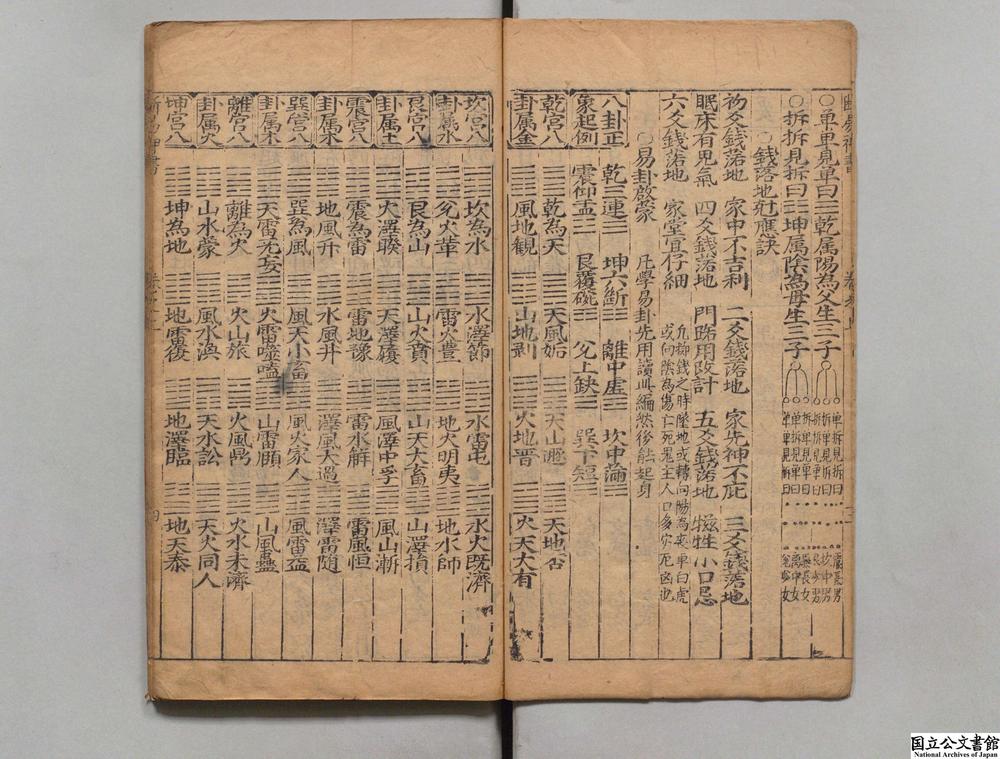 ○單單見單曰☰乾属陽為父生三子
單拆見拆曰
拆單見拆曰
拆拆見單曰
震長男
坎中男
艮少男
○拆拆見拆曰☷坤属陰為母生三子
拆單見單曰
單拆見單曰
單單見拆曰
巽長女
离中女
兌少女
○錢落地尅應訣
初爻錢落地 家中不吉利 二爻錢落地 家先神不庇 三爻錢落地
眠床有鬼氣 四爻錢落地 門路用改計 五爻錢落地 犠牲小口忌
六爻錢落地 家堂宜仔細
○易卦啟蒙 凡學易卦先用讀此編然後能起身
八卦正 乾三連☰ 坤六斷☷ 離中虛☲ 坎中滿☵
象起例 震仰盂☳ 艮覆碗☶ 兌上缺☱ 巽下短☴
乾宮八 乾為天 天風姤 天山遯 天地否
卦属金 風地觀 山地剥 火地晋 火天大有
坎宮八 坎為水 水澤節 水雷屯 水火既濟
卦属水 澤火革 雷火豊 地火明夷 地水師
艮宮八 艮為山 山火賁 山天大畜 山澤損
卦属土 火澤睽 天澤履 風澤中孚 風山漸
震宮八 震為雷 雷地豫 雷水解 雷風恒
卦属木 地風升 水風井 澤風大過 澤雷随
巽宮八 巽為風 風天小畜 風火家人 風雷益
卦属木 天雷无妄 火雷噬嗑 山雷頤 山風蠱
離宮八 離為火 火山旅 火風鼎 火水未濟
卦属火 山水蒙 風水渙 天水訟 天火同人
坤宮八 坤為地 地雷復 地澤臨 地天泰
四
国立公文書館
National Archives of Japan